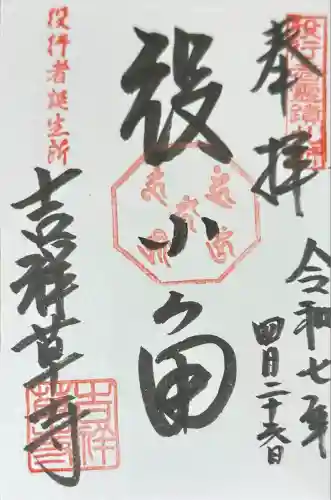 奉拝
令和七年
四月二十六日
役小角
役行者誕生所
吉祥草寺